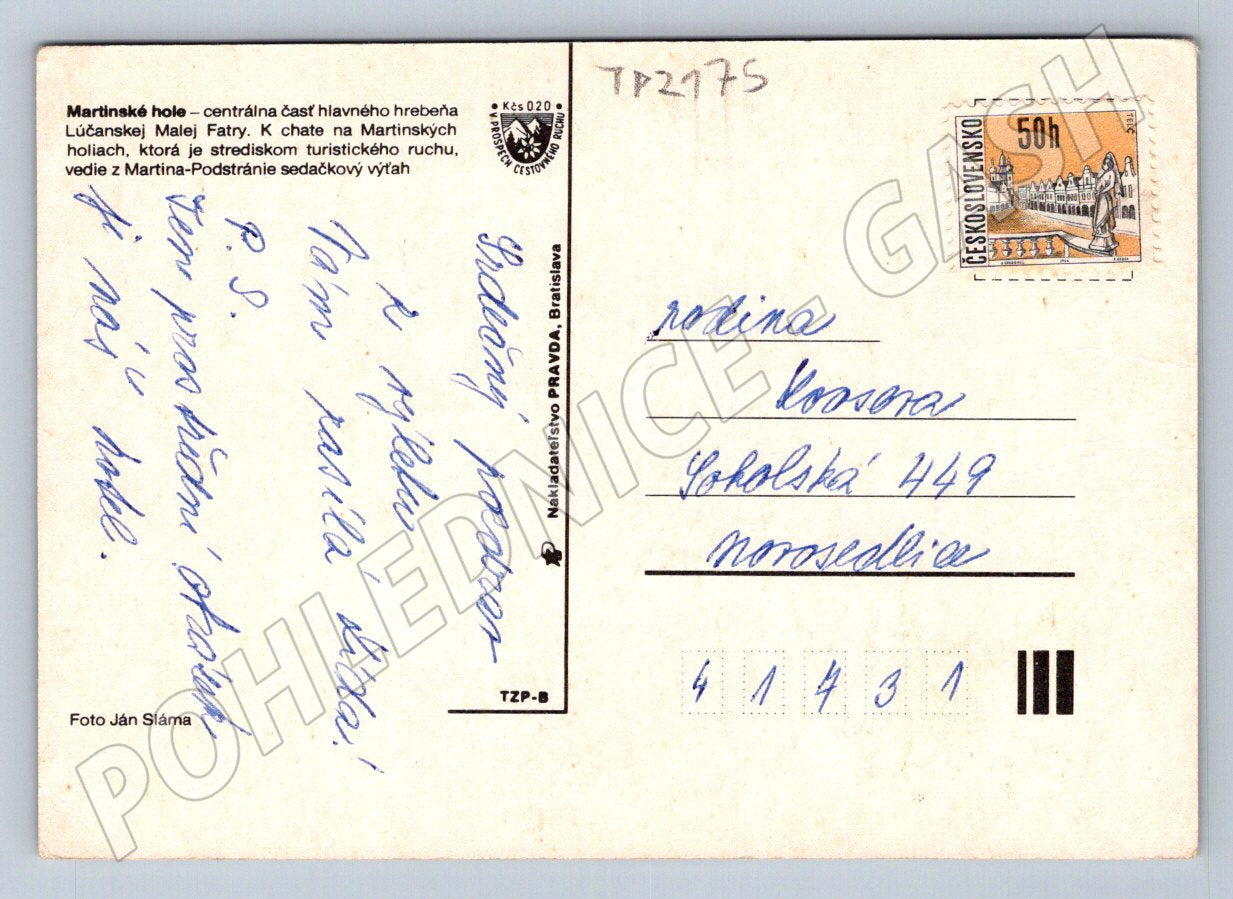 TP2175
Martinské hole – centrálna časť hlavného hrebeňa
Lúčanskej Malej Fatry. K chate na Martinských
holiach, ktorá je strediskom turistického ruchu,
vedie z Martina-Podstránie sedačkový výťah
• Kčs 0.20 •
V PROSPECH CESTOVNÉHO RUCHU
Srdečný pozdrav
z výletu
Vám zasílá
P. S.
Ten prostřední
ji náš hotel.
Nakladateľstvo PRAVDA, Bratislava
TZP-B
Foto Ján Sláma
ČESKOSLOVENSKO
50h
TELČ
rodina
Sokolská 449
Novosedlice
41731
POHLEDNICE - GASH